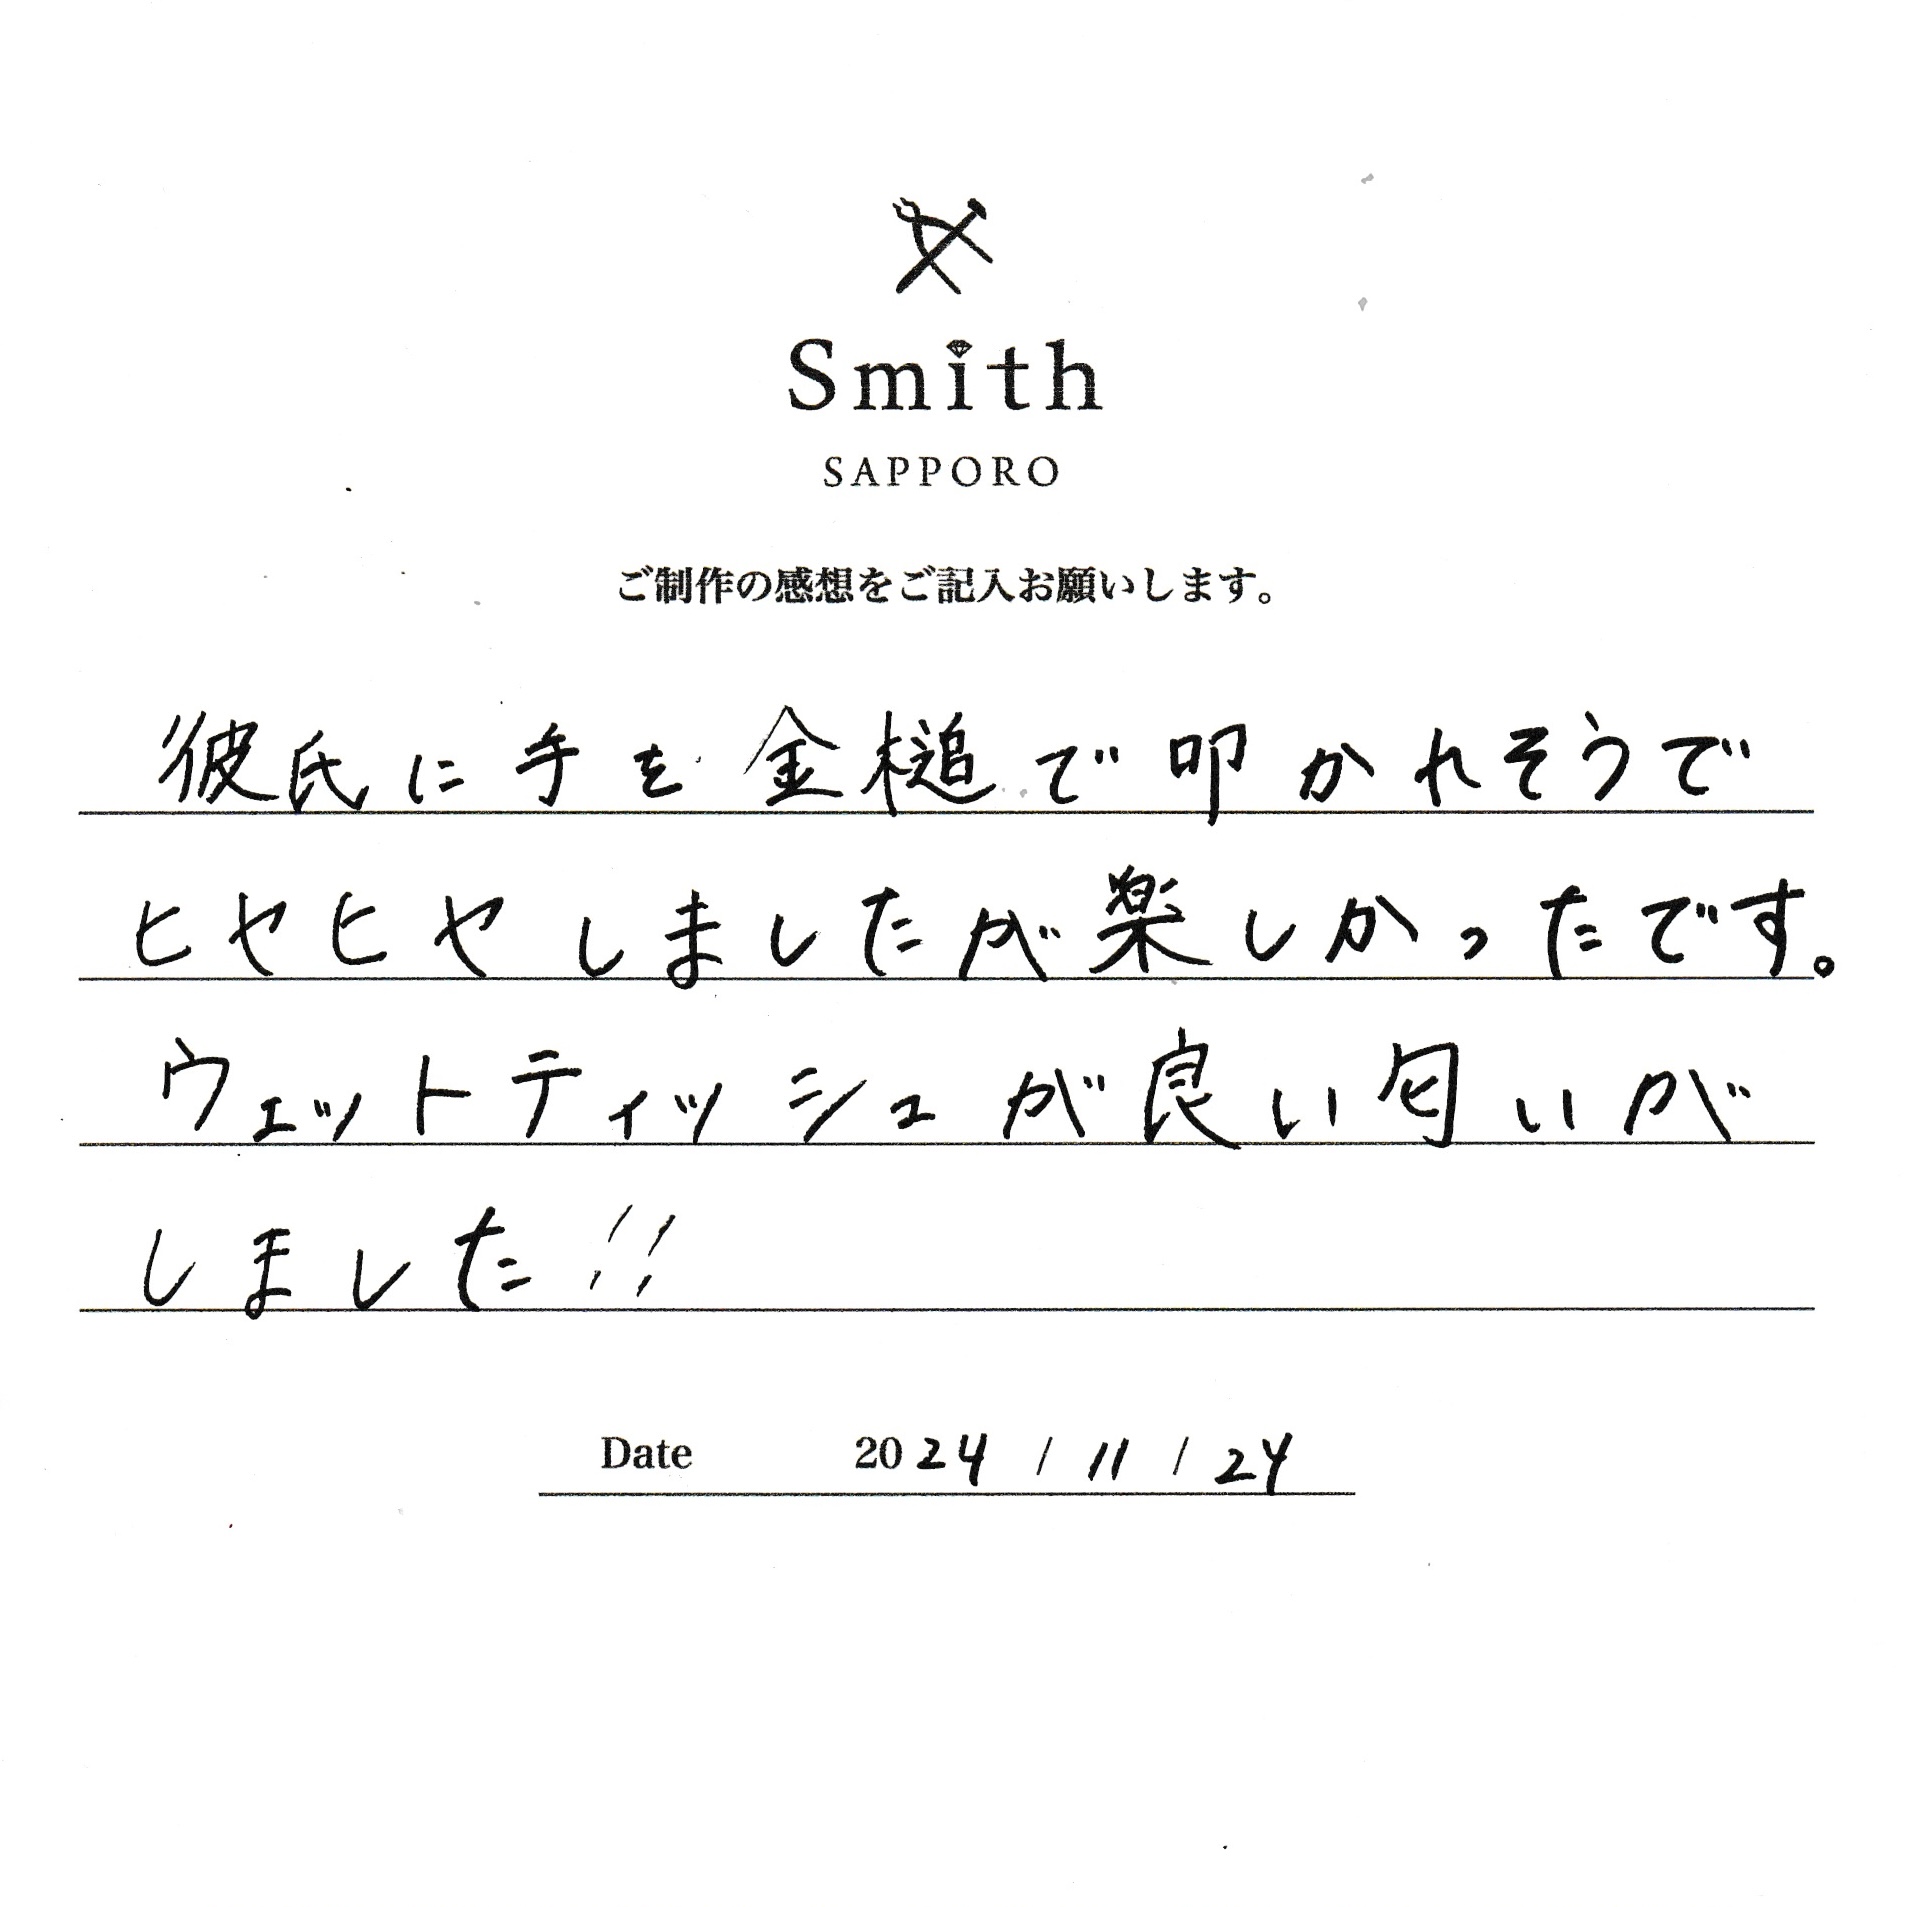 Smith
SAPPORO
ご制作の感想をご記入お願いします。
彼氏に手を金槌で叩かれそうで
ヒヤヒヤしましたが楽しかったです。
ウェットティッシュが良い匂いが
しました!!
Date 2024 / 11 / 24